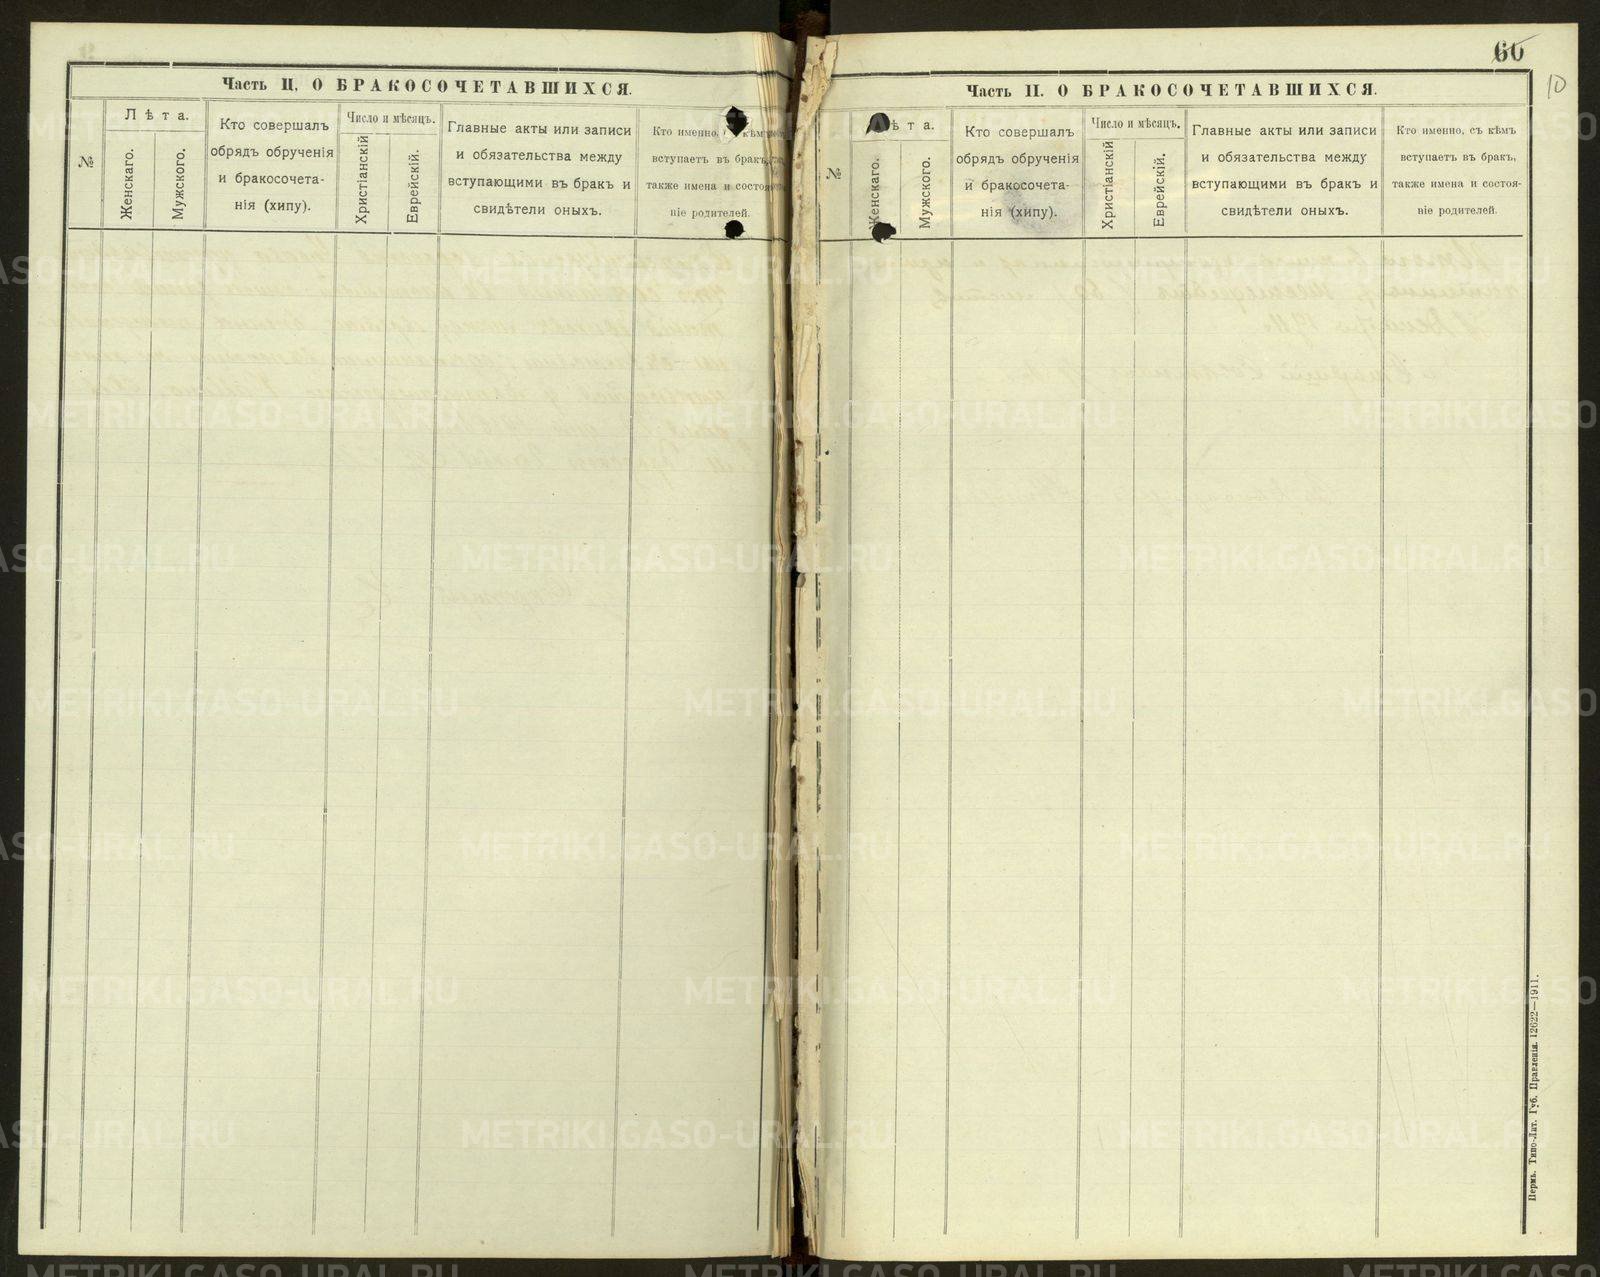 Часть II. О БРАКОСОЧЕТАВШИХСЯ.
№
Лѣта.
Женскаго.
Мужского.
Кто совершалъ
обрядъ обрученія
и бракосочета-
нія (хипу).
Число и мѣсяцъ.
Христіанскій
Еврейскій.
Главные акты или записи
и обязательства между
вступающими въ бракъ и
свидѣтели оныхъ.
Кто именно, съ кѣмъ
вступаетъ въ бракъ,
также имена и состоя-
ніе родителей.
60
10
Часть II. О БРАКОСОЧЕТАВШИХСЯ.
№
Лѣта.
Женскаго.
Мужского.
Кто совершалъ
обрядъ обрученія
и бракосочета-
нія (хипу).
Число и мѣсяцъ.
Христіанскій
Еврейскій.
Главные акты или записи
и обязательства между
вступающими въ бракъ и
свидѣтели оныхъ.
Кто именно, съ кѣмъ
вступаетъ въ бракъ,
также имена и состоя-
ніе родителей.
Пермь. Типо-Лит. Губ. Правленія. 12622—1911.
METRIKI.GASO-URAL.RU